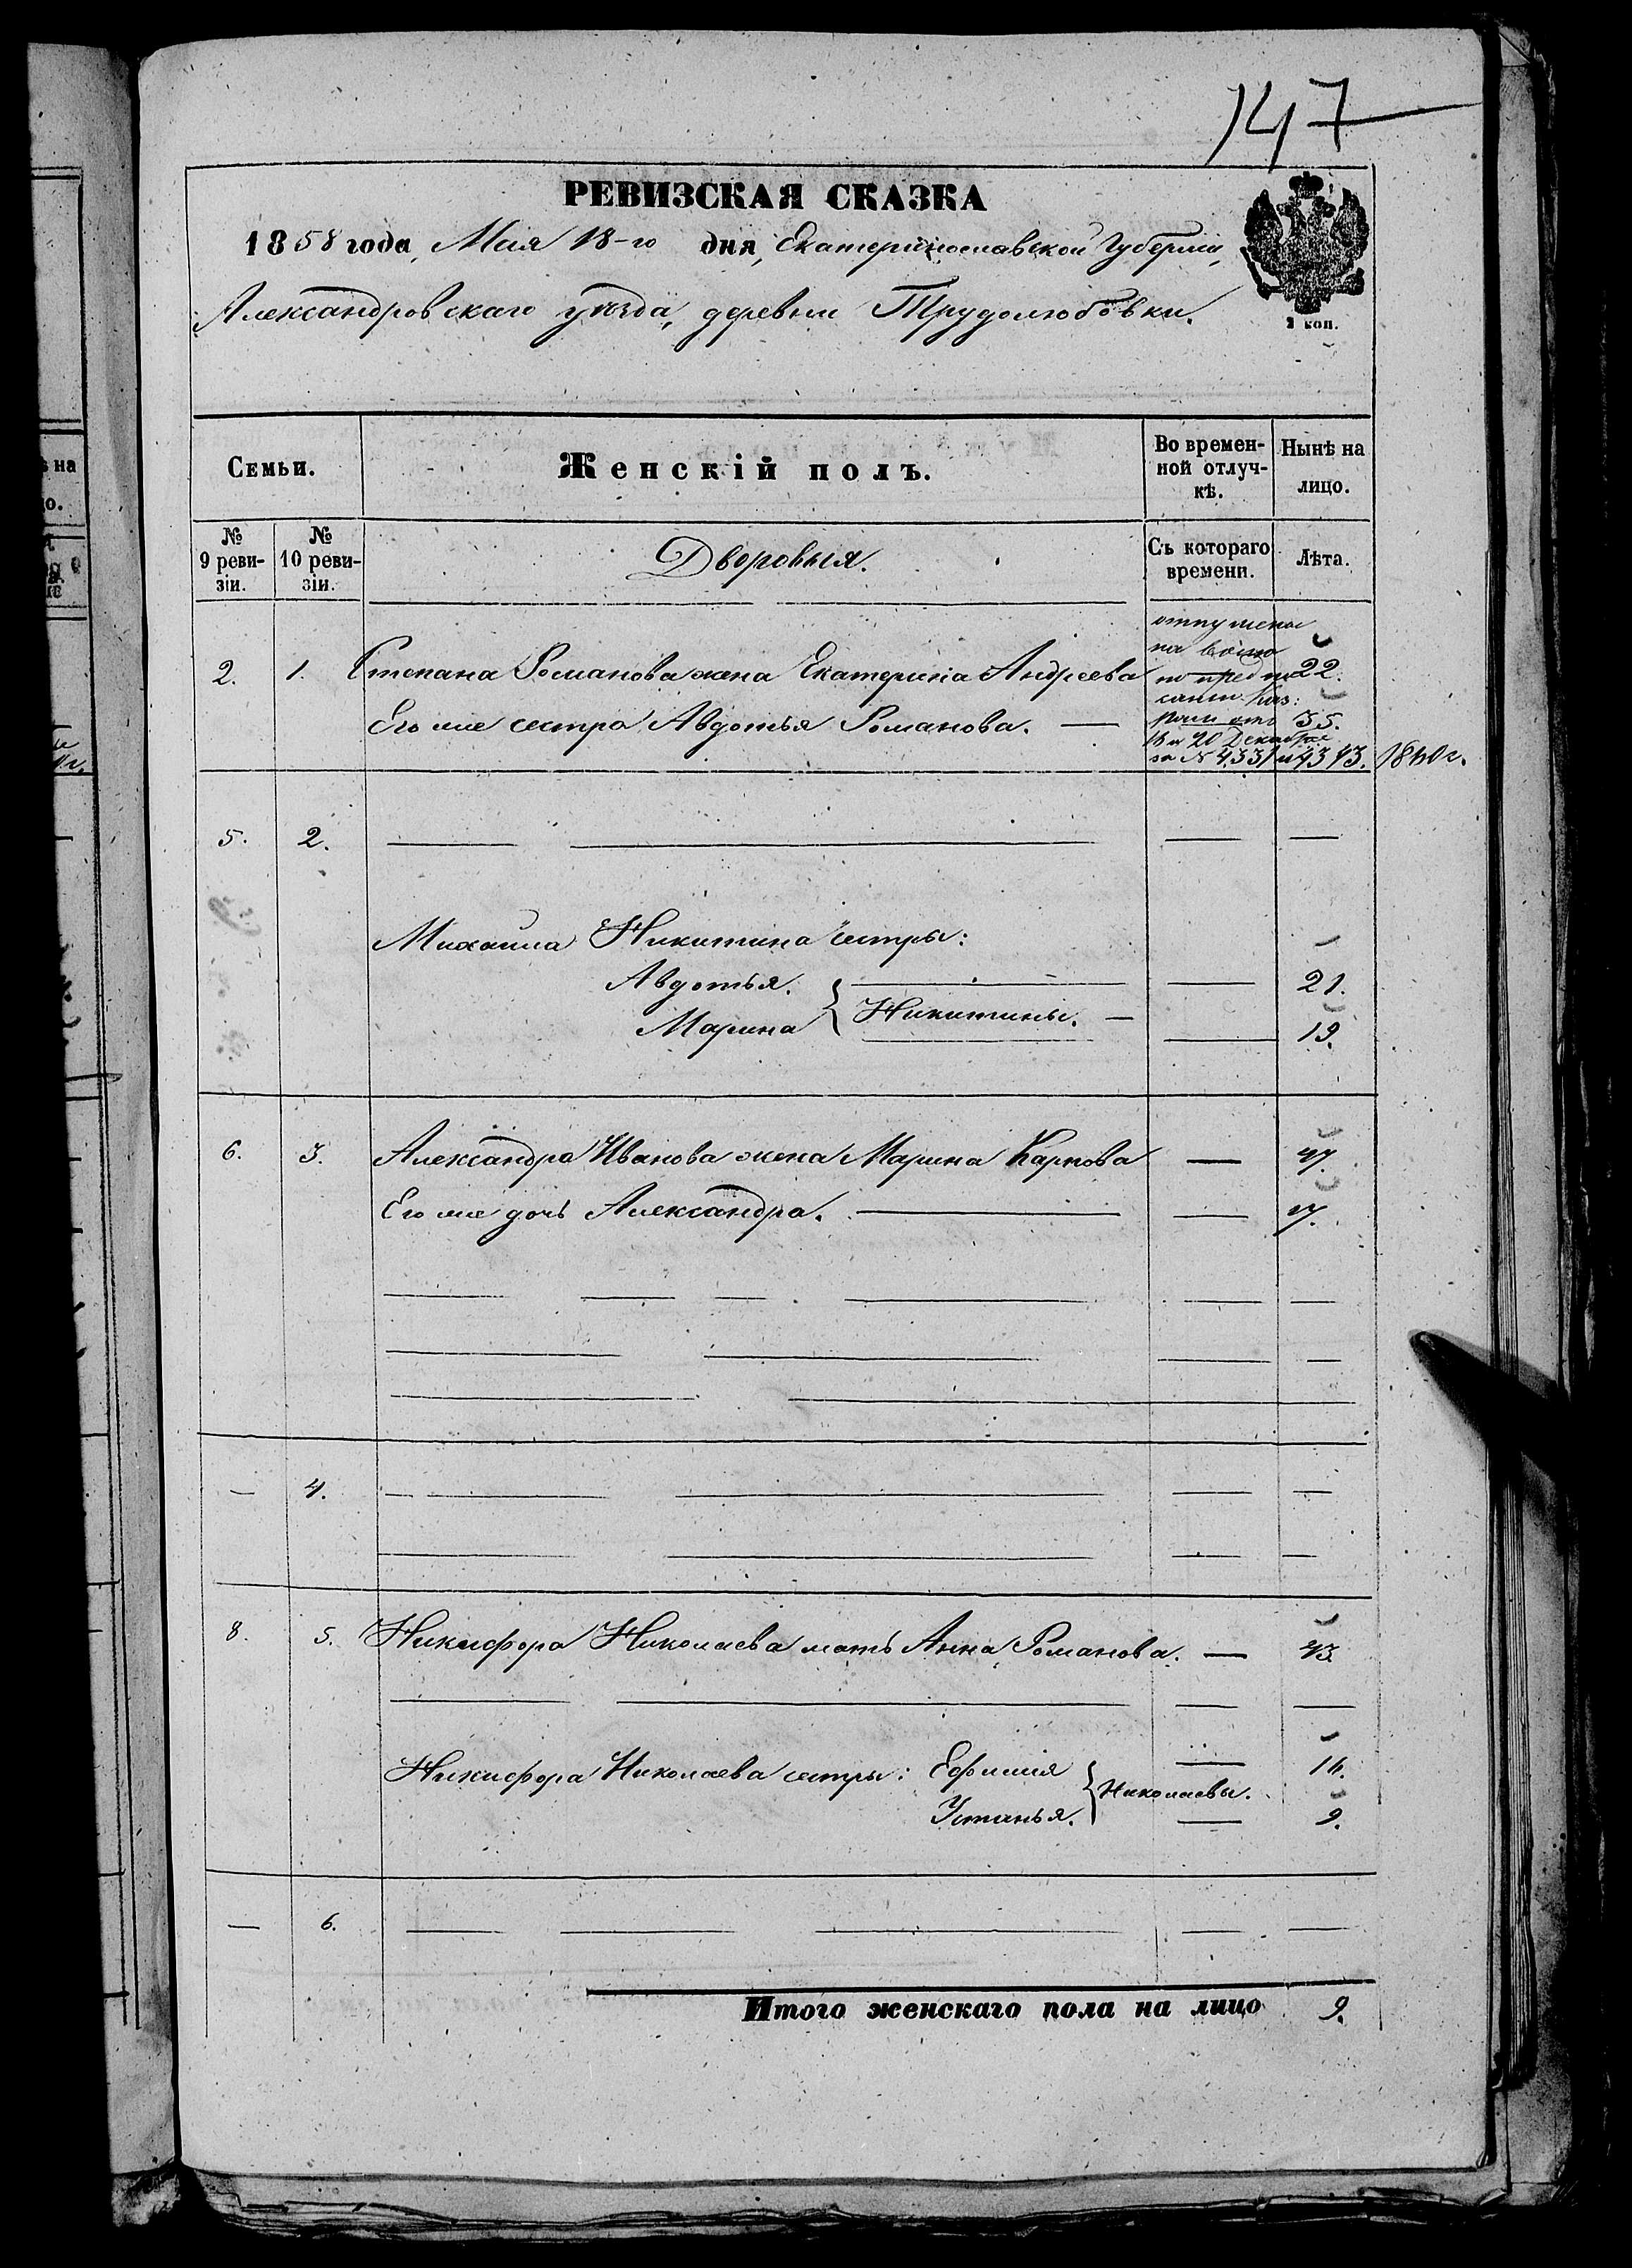 147
РЕВИЗСКАЯ СКАЗКА
1858 года, Мая 18-го дня, Екатеринославской Губерніи,
Александровскаго уѣзда, деревни Трудолюбовки.
2 коп.
Семьи.
Женскій полъ.
Во времен-
ной отлуч-
кѣ.
Нынѣ на
лицо.
№
9 реви-
зіи.
№
10 реви-
зіи.
Дворовыя.
Съ котораго
времени.
Лѣта.
2. 1. Степана Романова жена Екатерина Андреева 22.
Его же сестра Авдотья Романова. — 35.
отпущены
на волю
по предпи
сан. Каз:
18 и 20 Декабря
за № 4331 и 4343. 18
5. 2. — — — —
Михаила Никитина сестры:
Авдотья. — — 21.
Марина } Никитины. — — 19.
6. 3. Александра Иванова жена Марина Карпова — 47.
Его же дочь Александра. — — 17.
— 4. — — — —
8. 5. Никифора Николаева мать Анна Романова. — 43.
Никифора Николаева сестры: Ефимия — 16.
Устинья. } Николаевы. — 9.
— 6. — — — — —
Итого женскаго пола на лицо 9.